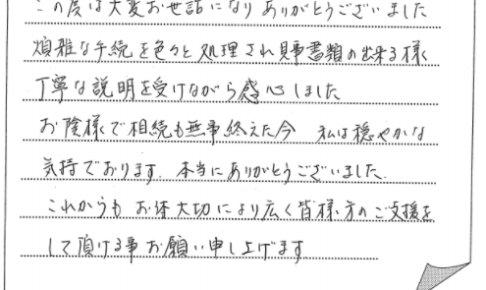 この度は大変お世話になりありがとうございました
煩雅な手続を色々と処理され見事書類の出来る様
丁寧な説明を受けながら感心しました
お陰様で相続も無事終えた今 私は穏やかな
気持でおります。本当にありがとうございました。
これからも お体大切により広く皆様方のご支援を
して頂ける事お願い申し上げます